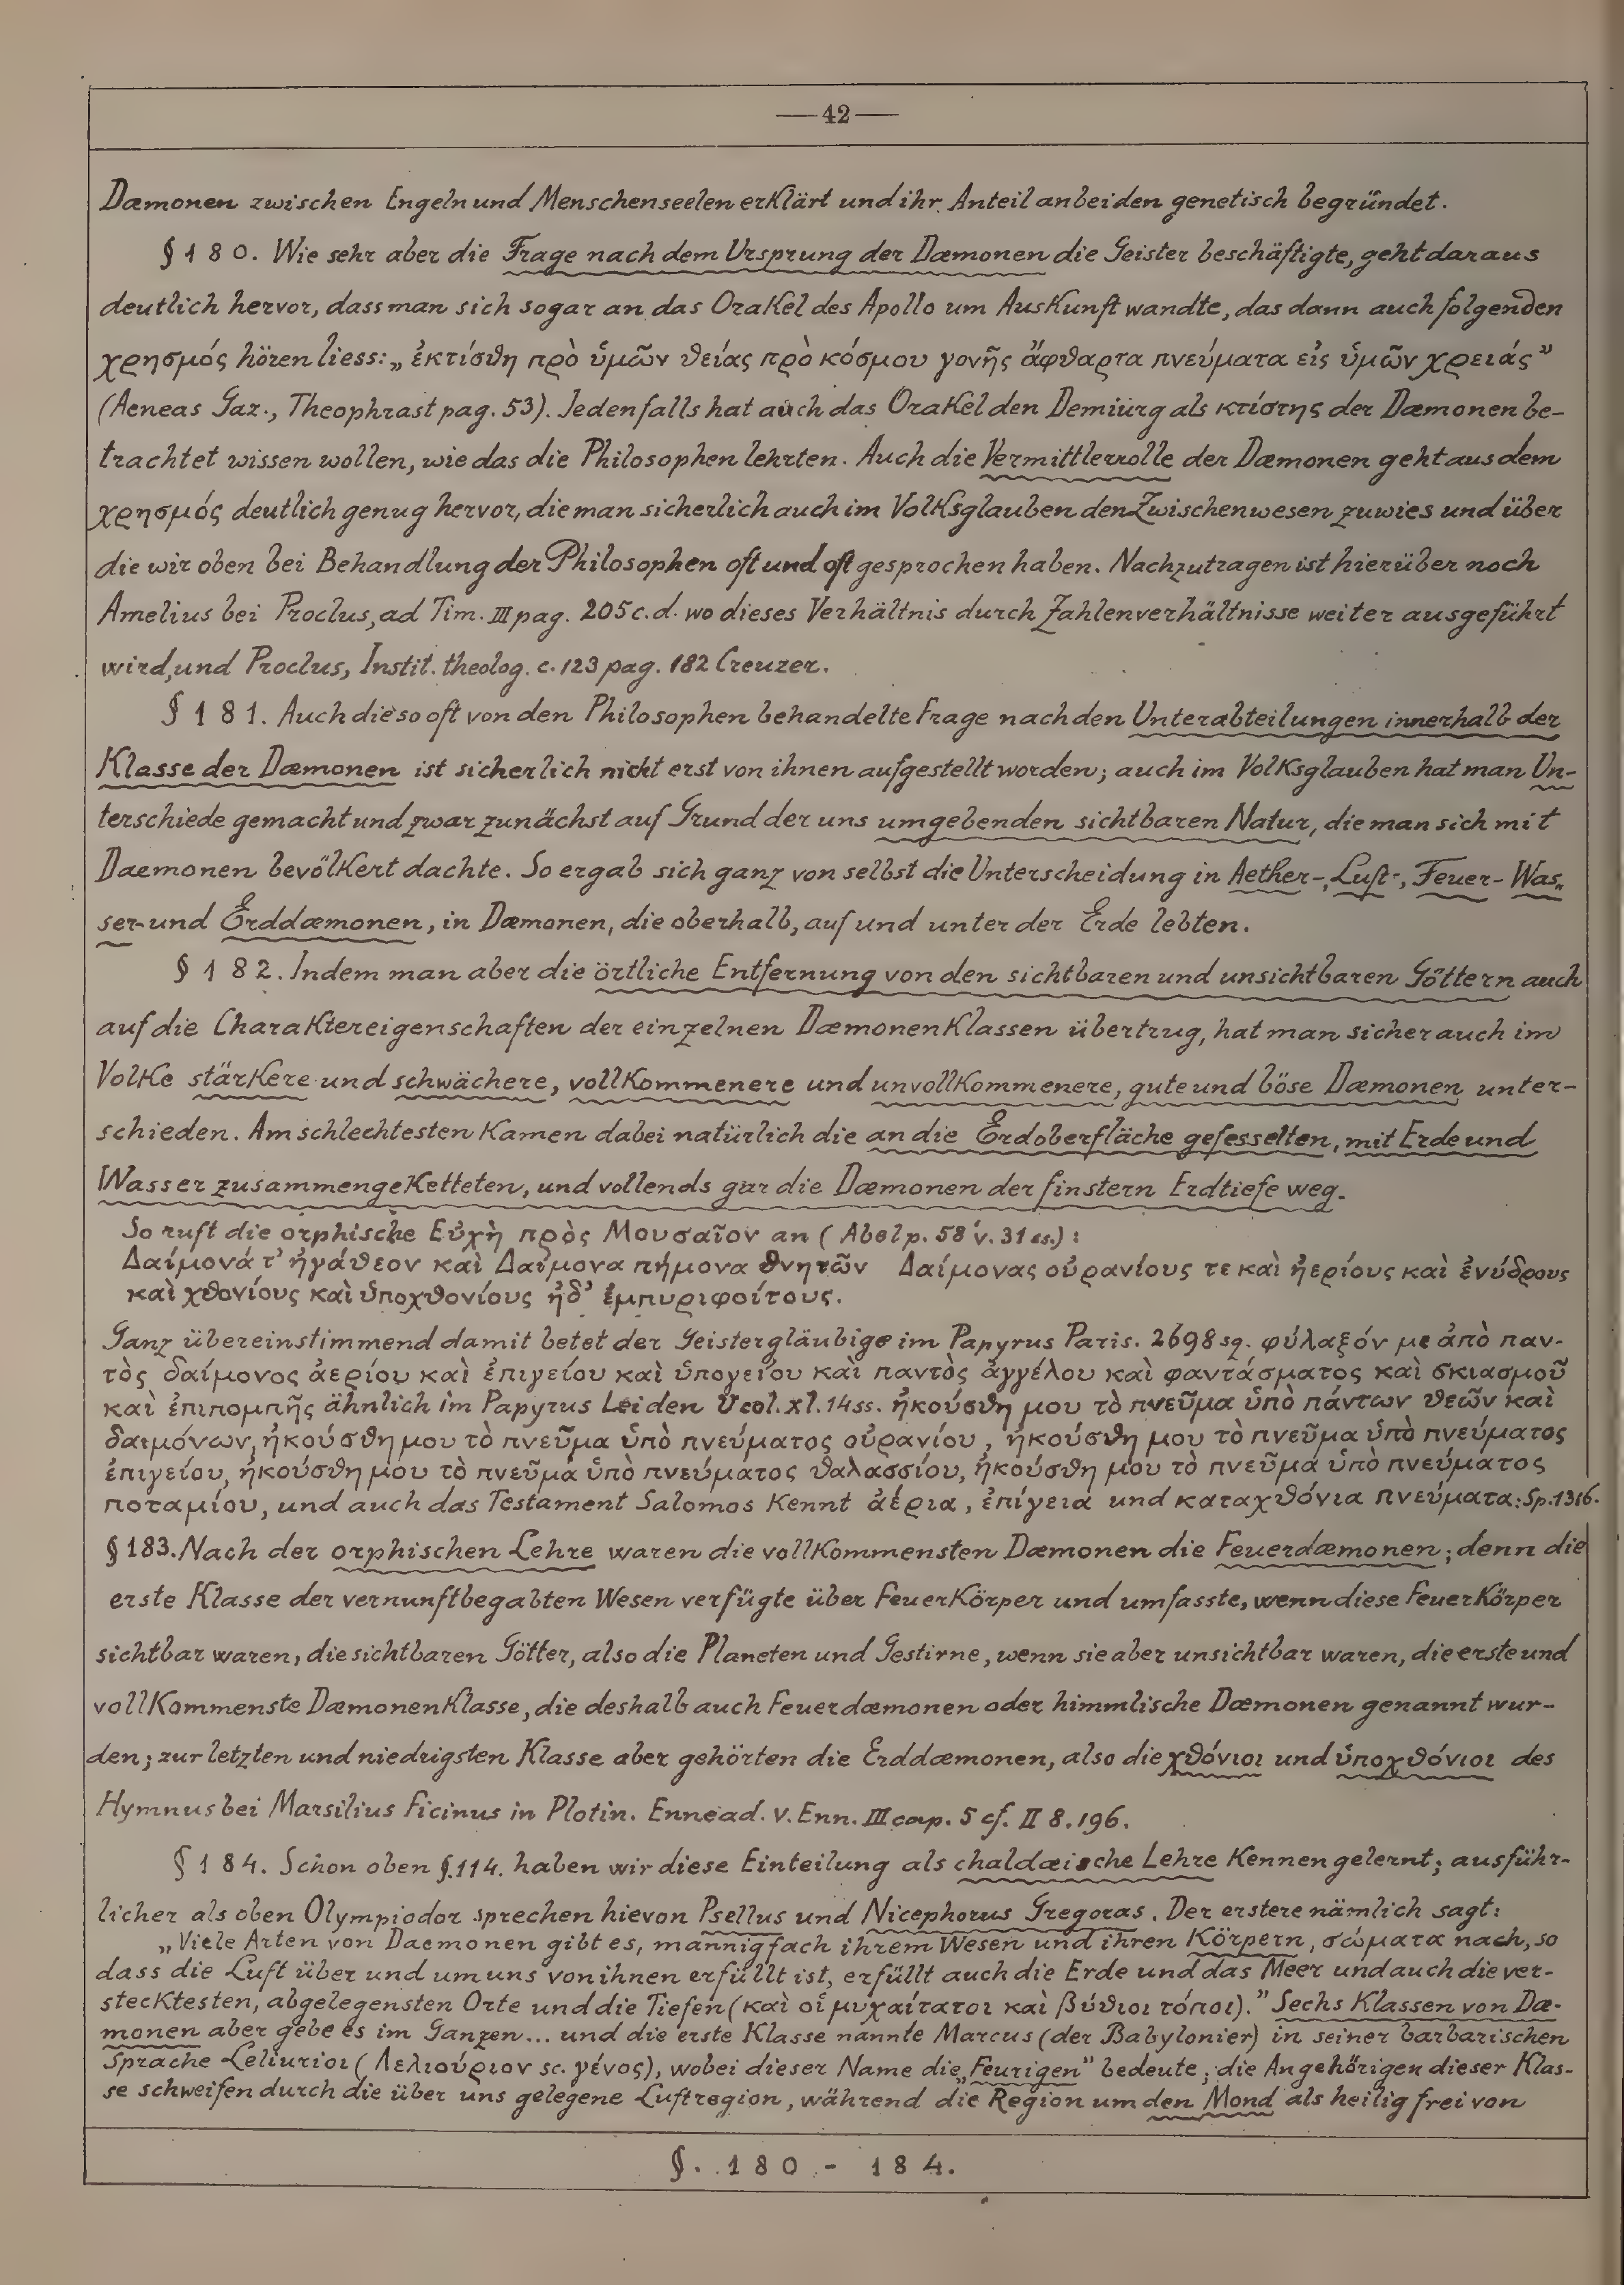 —42—
Dæmonen zwischen Engeln und Menschenseelen erklärt und ihr Anteil an beiden genetisch begründet.
§ 180. Wie sehr aber die Frage nach dem Ursprung der Dæmonen die Geister beschäftigte, geht daraus
deutlich hervor, dass man sich sogar an das Orakel des Apollo um Auskunft wandte, das dann auch folgenden
χρησμός hören liess: „ἐκτίσθη πρὸ ὑμῶν θείας πρὸ κόσμου γονῆς ἄφθαρτα πνεύματα εἰς ὑμῶν χρειάς”
(Aeneas Gaz., Theophrast pag. 53). Jedenfalls hat auch das Orakel den Demiurg als κτίστης der Dæmonen be-
trachtet wissen wollen, wie das die Philosophen lehrten. Auch die Vermittlerrolle der Dæmonen geht aus dem
χρησμός deutlich genug hervor, die man sicherlich auch im Volksglauben den Zwischenwesen zuwies und über
die wir oben bei Behandlung der Philosophen oft und oft gesprochen haben. Nachzutragen ist hierüber noch
Amelius bei Proclus, ad Tim. III pag. 205 c.d. wo dieses Verhältnis durch Zahlenverhältnisse weiter ausgeführt
wird, und Proclus, Instit. theolog. c. 123 pag. 182 Creuzer.
§ 181. Auch die so oft von den Philosophen behandelte Frage nach den Unterabteilungen innerhalb der
Klasse der Dæmonen ist sicherlich nicht erst von ihnen aufgestellt worden; auch im Volksglauben hat man Un-
terschiede gemacht und zwar zunächst auf Grund der uns umgebenden sichtbaren Natur, die man sich mit
Daemonen bevölkert dachte. So ergab sich ganz von selbst die Unterscheidung in Aether-, Luft-, Feuer- Was„
ser- und Erddæmonen, in Dæmonen, die oberhalb, auf und unter der Erde lebten.
§ 182. Indem man aber die örtliche Entfernung von den sichtbaren und unsichtbaren Göttern auch
auf die Charaktereigenschaften der einzelnen Dæmonenklassen übertrug, hat man sicher auch im
Volke stärkere und schwächere, vollkommenere und unvollkommenere, gute und böse Dæmonen unter-
schieden. Am schlechtesten kamen dabei natürlich die an die Erdoberfläche gefesselten, mit Erde und
Wasser zusammengeketteten, und vollends gar die Dæmonen der finstern Erdtiefe weg.
So ruft die orphische Εὐχὴ πρὸς Μουσαῖον an (Abel p. 58 v. 31 ss.):
Δαίμονά τ’ ἠγάθεον καὶ Δαίμονα πήμονα θνητῶν Δαίμονας οὐρανίους τε καὶ ἠερίους καὶ ἐνύδρους
καὶ χθονίους καὶ ὑποχθονίους ἠδ’ ἐμπυριφοίτους.
Ganz übereinstimmend damit betet der Geistergläubige im Papyrus Paris. 2698 sq. φύλαξόν με ἀπὸ παν-
τὸς δαίμονος ἀερίου καὶ ἐπιγείου καὶ ὑπογείου καὶ παντὸς ἀγγέλου καὶ φαντάσματος καὶ σκιασμοῦ
καὶ ἐπιπομπῆς ähnlich im Papyrus Leiden V col. XI. 14 ss. ἠκούσθη μου τὸ πνεῦμα ὑπὸ πάντων θεῶν καὶ
δαιμόνων, ἠκούσθη μου τὸ πνεῦμα ὑπὸ πνεύματος οὐρανίου, ἠκούσθη μου τὸ πνεῦμα ὑπὸ πνεύματος
ἐπιγείου, ἠκούσθη μου τὸ πνεῦμα ὑπὸ πνεύματος θαλασσίου, ἠκούσθη μου τὸ πνεῦμα ὑπὸ πνεύματος
ποταμίου, und auch das Testament Salomos kennt ἀέρια, ἐπίγεια und καταχθόνια πνεύματα: Sp. 1316.
§ 183. Nach der orphischen Lehre waren die vollkommensten Dæmonen die Feuerdæmonen; denn die
erste Klasse der vernunftbegabten Wesen verfügte über Feuerkörper und umfasste, wenn diese Feuerkörper
sichtbar waren, die sichtbaren Götter, also die Planeten und Gestirne, wenn sie aber unsichtbar waren, die erste und
vollkommenste Dæmonenklasse, die deshalb auch Feuerdæmonen oder himmlische Dæmonen genannt wur-
den; zur letzten und niedrigsten Klasse aber gehörten die Erddæmonen, also die χθόνιοι und ὑποχθόνιοι des
Hymnus bei Marsilius Ficinus in Plotin. Ennead. V. Enn. III cap. 5 cf. II 8. 196.
§ 184. Schon oben §. 114. haben wir diese Einteilung als chaldæische Lehre kennen gelernt; ausführ-
licher als oben Olympiodor sprechen hievon Psellus und Nicephorus Gregoras. Der erstere nämlich sagt:
„Viele Arten von Daemonen gibt es, mannigfach ihrem Wesen und ihren Körpern, σώματα nach, so
dass die Luft über und um uns von ihnen erfüllt ist, erfüllt auch die Erde und das Meer und auch die ver-
stecktesten, abgelegensten Orte und die Tiefen (καὶ οἱ μυχαίτατοι καὶ βύθιοι τόποι).” Sechs Klassen von Dæ-
monen aber gebe es im Ganzen... und die erste Klasse nannte Marcus (der Babylonier) in seiner barbarischen
Sprache Leliurioi (Λελιούριον sc. γένος), wobei dieser Name die „Feurigen” bedeute; die Angehörigen dieser Klas-
se schweifen durch die über uns gelegene Luftregion, während die Region um den Mond als heilig frei von
§. 180 - 184.